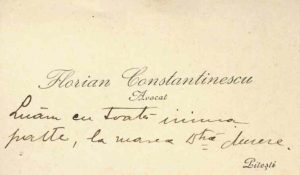 Florian Constantinescu
Avocat
Luăm cu toată inima
parte, la marea Dtră durere.
Pitești